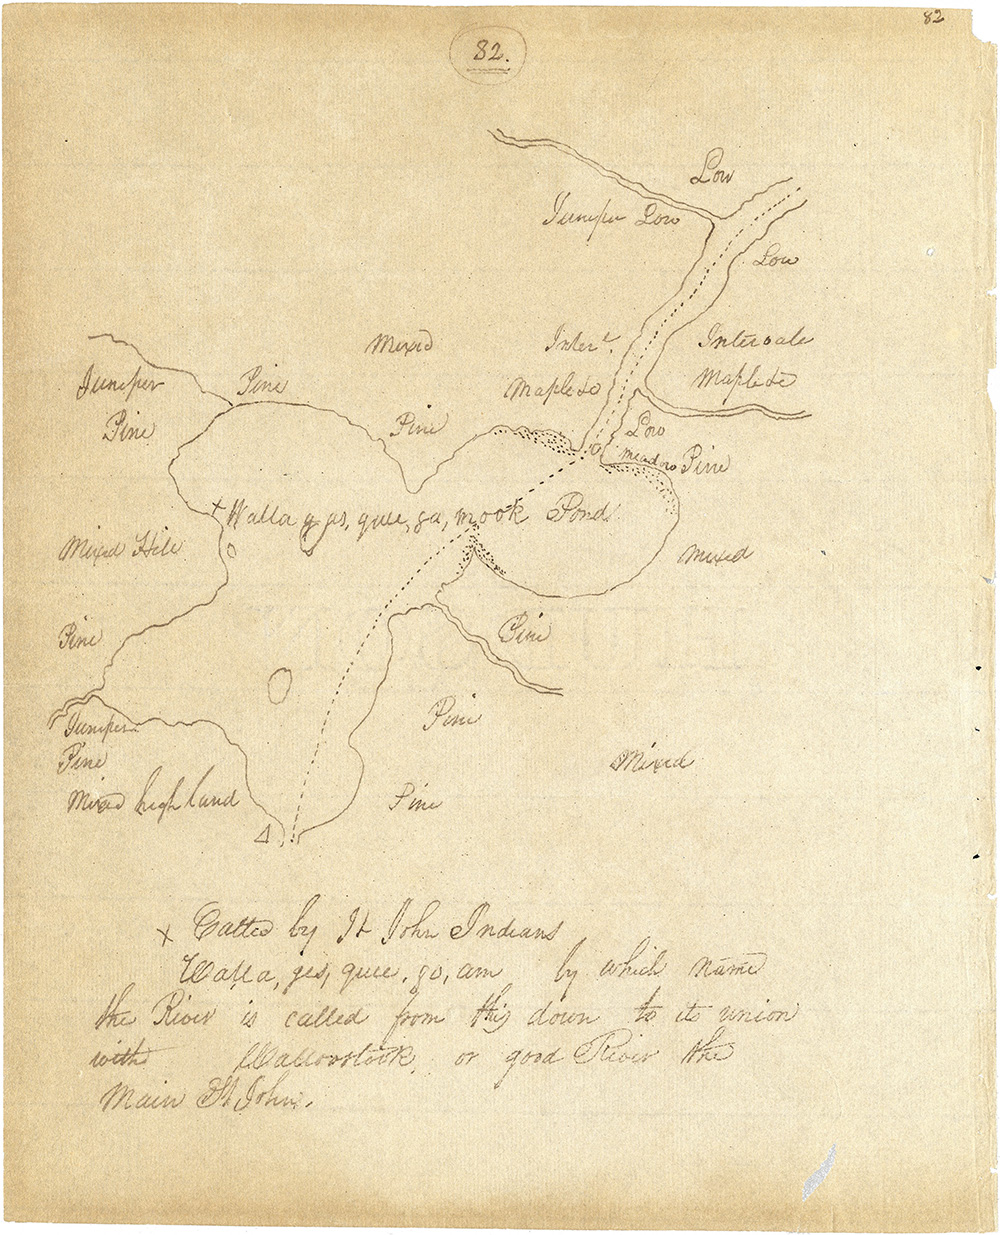 82
82.
Low
Juniper Low
Low
Mixed
Inter.
Intervale
Juniper
Pine
Maple &c
Maple &c
Pine
Pine
Low
meadow
Pine
+ Walla, gas, quie, ga, mook Pond
Mixed Hill
Mixed
Pine
Pine
Juniper
Pine
Pine
Mixed
Mixed high land
Pine
x Called by St John Indians
Walla, ges, quie, go, am by which name
the River is called from this down to its union
with Wallowstook, or good River the
Main St John.